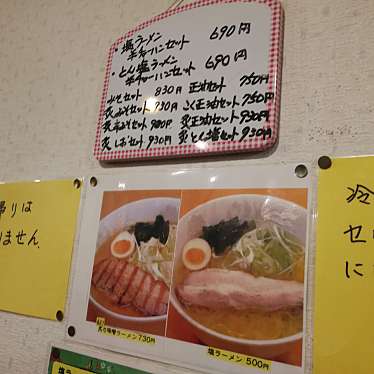 ・塩ラーメン
半チャーハンセット 690円
・とん塩ラーメン
半チャーハンセット 690円
みそセット 830円 正油セット 750円
炙みそセット 930円 こく正油セット 750円
炙正油セット 930円
炙しおセット 930円 炙とん塩セット 930円
帰りは
ません。
冷
セ
に
炙り味噌ラーメン 730円
塩ラーメン 500円
塩ラ